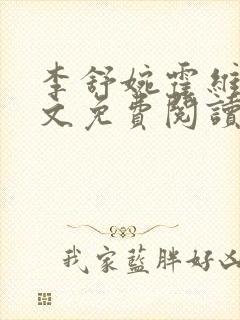 李舒婉霍維
文免費閱讀
我家藍胖好凶